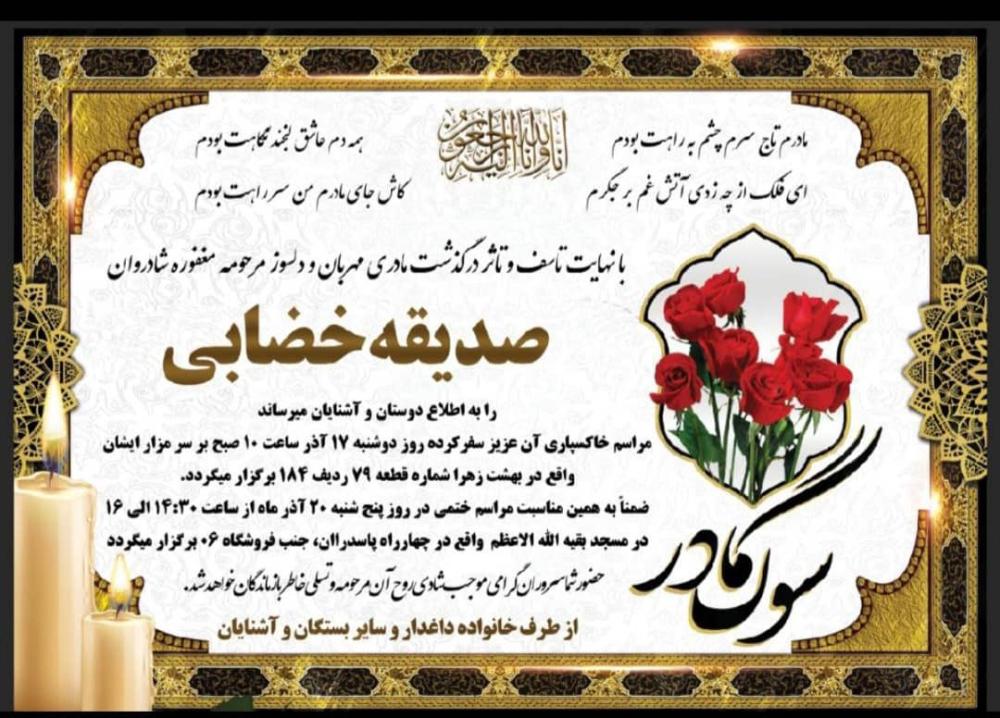 انا لله وانا الیه راجعون
مادرم تاج سرم چشم به راهت بودم
همه دم عاشق لبخند نگاهت بودم
ای فلک از چه زدی آتش غم بر جگرم
کاش جای مادرم من سر راهت بودم
با نهایت تاسف و تاثر درگذشت مادری مهربان و دلسوز مرحومه مغفوره شادروان
صدیقه خضابی
را به اطلاع دوستان و آشنایان میرساند
مراسم خاکسپاری آن عزیز سفرکرده روز دوشنبه ۱۷ آذر ساعت ۱۰ صبح بر سر مزار ایشان
واقع در بهشت زهرا شماره قطعه ۷۹ ردیف ۱۸۴ برگزار میگردد.
ضمناً به همین مناسبت مراسم ختمی در روز پنج شنبه ۲۰ آذر ماه از ساعت ۱۴:۳۰ الی ۱۶
در مسجد بقیه الله الاعظم واقع در چهارراه پاسدراان، جنب فروشگاه ۰۶ برگزار میگردد
حضور شما سروران گرامی موجب شادی روح آن مرحومه و تسلی خاطر بازماندگان خواهد شد.
از طرف خانواده داغدار و سایر بستگان و آشنایان
سوگ مادر